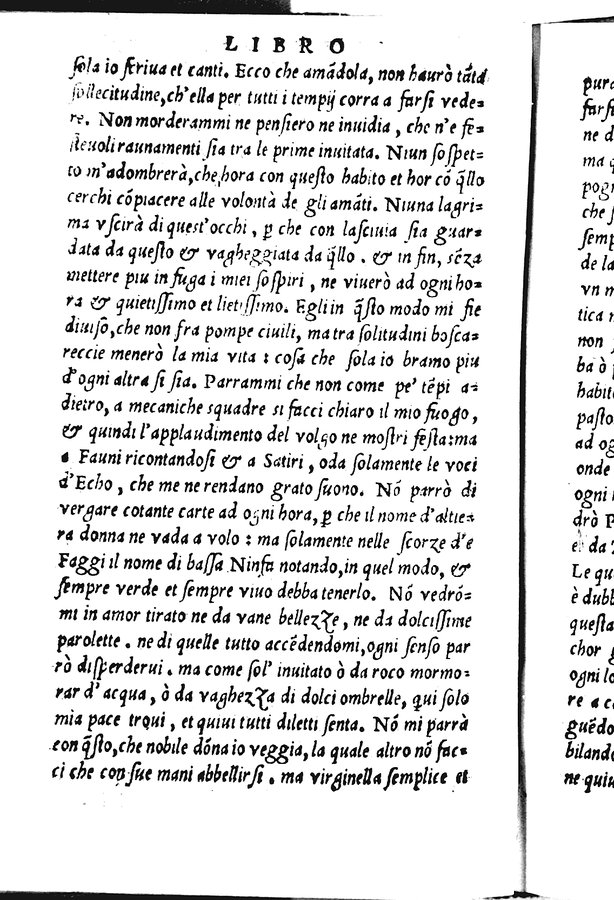 LIBRO
ſola io ſcriua et canti. Ecco che amãdola, non haurò tãta
ſollecitudine, ch'ella per tutti i tempij corra a farſi vede=
re. Non morderammi ne penſiero ne inuidia, che n'e fe=
ſteuoli raunamenti ſia tra le prime inuitata. Niun ſoſpet=
to m'adombrerà, che, hora con queſto habito et hor cõ q̃llo
cerchi cõpiacere alle volontà de gli amãti. Niuna lagri=
ma vſcirà di queſt'occhi, ꝑ che con laſciuia ſia guar=
data da queſto & vagheggiata da q̃llo. & in fin, sẽza
mettere piu in fuga i miei ſoſpiri, ne viuerò ad ogni ho=
ra & quietiſſimo et lietiſſimo. Egli in q̃ſto modo mi fie
diuiſo, che non fra pompe ciuili, ma tra ſolitudini boſca=
reccie menerò la mia vita: coſa che ſola io bramo piu
d'ogni altra ſi ſia. Parrammi che non come pe' tẽpi a=
dietro, a mecaniche squadre si facci chiaro il mio fuogo,
& quindi l'applaudimento del volgo ne moſtri feſta: ma
a Fauni ricontandoſi & a Satiri, oda ſolamente le voci
d'Echo, che me ne rendano grato ſuono. Nõ parrò di
vergare cotante carte ad ogni hora, ꝑ che il nome d'altie=
ra donna ne vada a volo: ma ſolamente nelle ſcorze d'e
Faggi il nome di baſſa Ninfa notando, in quel modo, &
ſempre verde et ſempre viuo debba tenerlo. Nõ vedrõ=
mi in amor tirato ne da vane bellezze, ne da dolciſſime
parolette. ne di quelle tutto accẽdendomi, ogni ſenſo par
rò diſperderui. ma come ſol' inuitato ò da roco mormo=
rar d'acqua, ò da vaghezza di dolci ombrelle, qui ſolo
mia pace troui, et quiui tutti diletti ſenta. Nõ mi parrà
con q̃ſto, che nobile dõna io veggia, la quale altro nõ fac=
ci che con ſue mani abbellirſi. ma virginella ſemplice et
pura
farſi
ne d
ma q
pogn
che ſ
ſemp
de la
vn m
tica n
non
ba ò p
habit
paſto
ad og
onde
ogni l
drò P
da
Le qu
è dubb
queſta
chor
ogni lo
re a c
guẽdo
biland
ne quiu